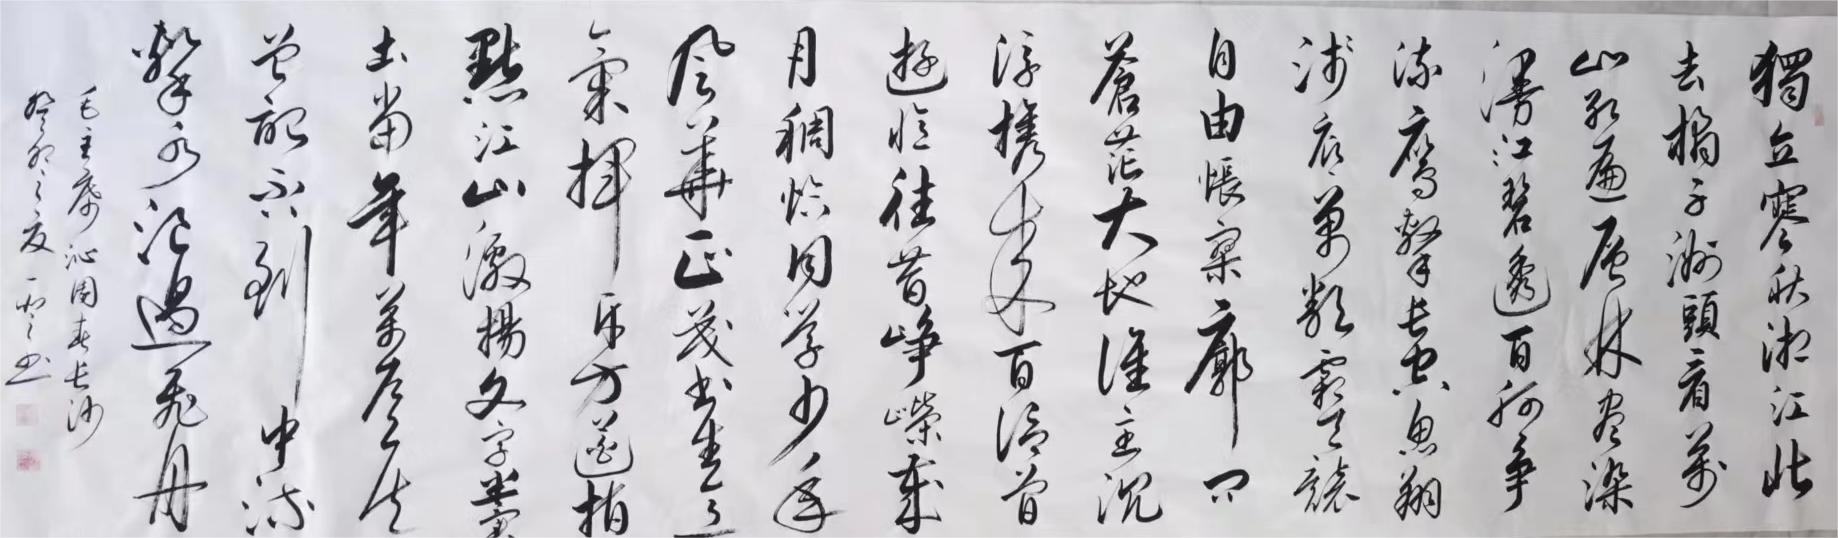 獨立寒秋湘江北
去橘子洲頭看萬
山紅遍層林尽染
漫江碧透百舸爭
流鷹擊長空魚翔
淺底萬類霜天競
自由悵寥廓问
蒼茫大地誰主沉
浮携来百侣曾
遊憶往昔崢嶸歲
月稠恰同学少年
风華正茂书生意
氣揮斥方遒指
點江山激揚文字糞
土當年萬户侯
曾記否到中流
擊水浪遏飛舟
毛主席沁園春長沙
癸卯之夏一书